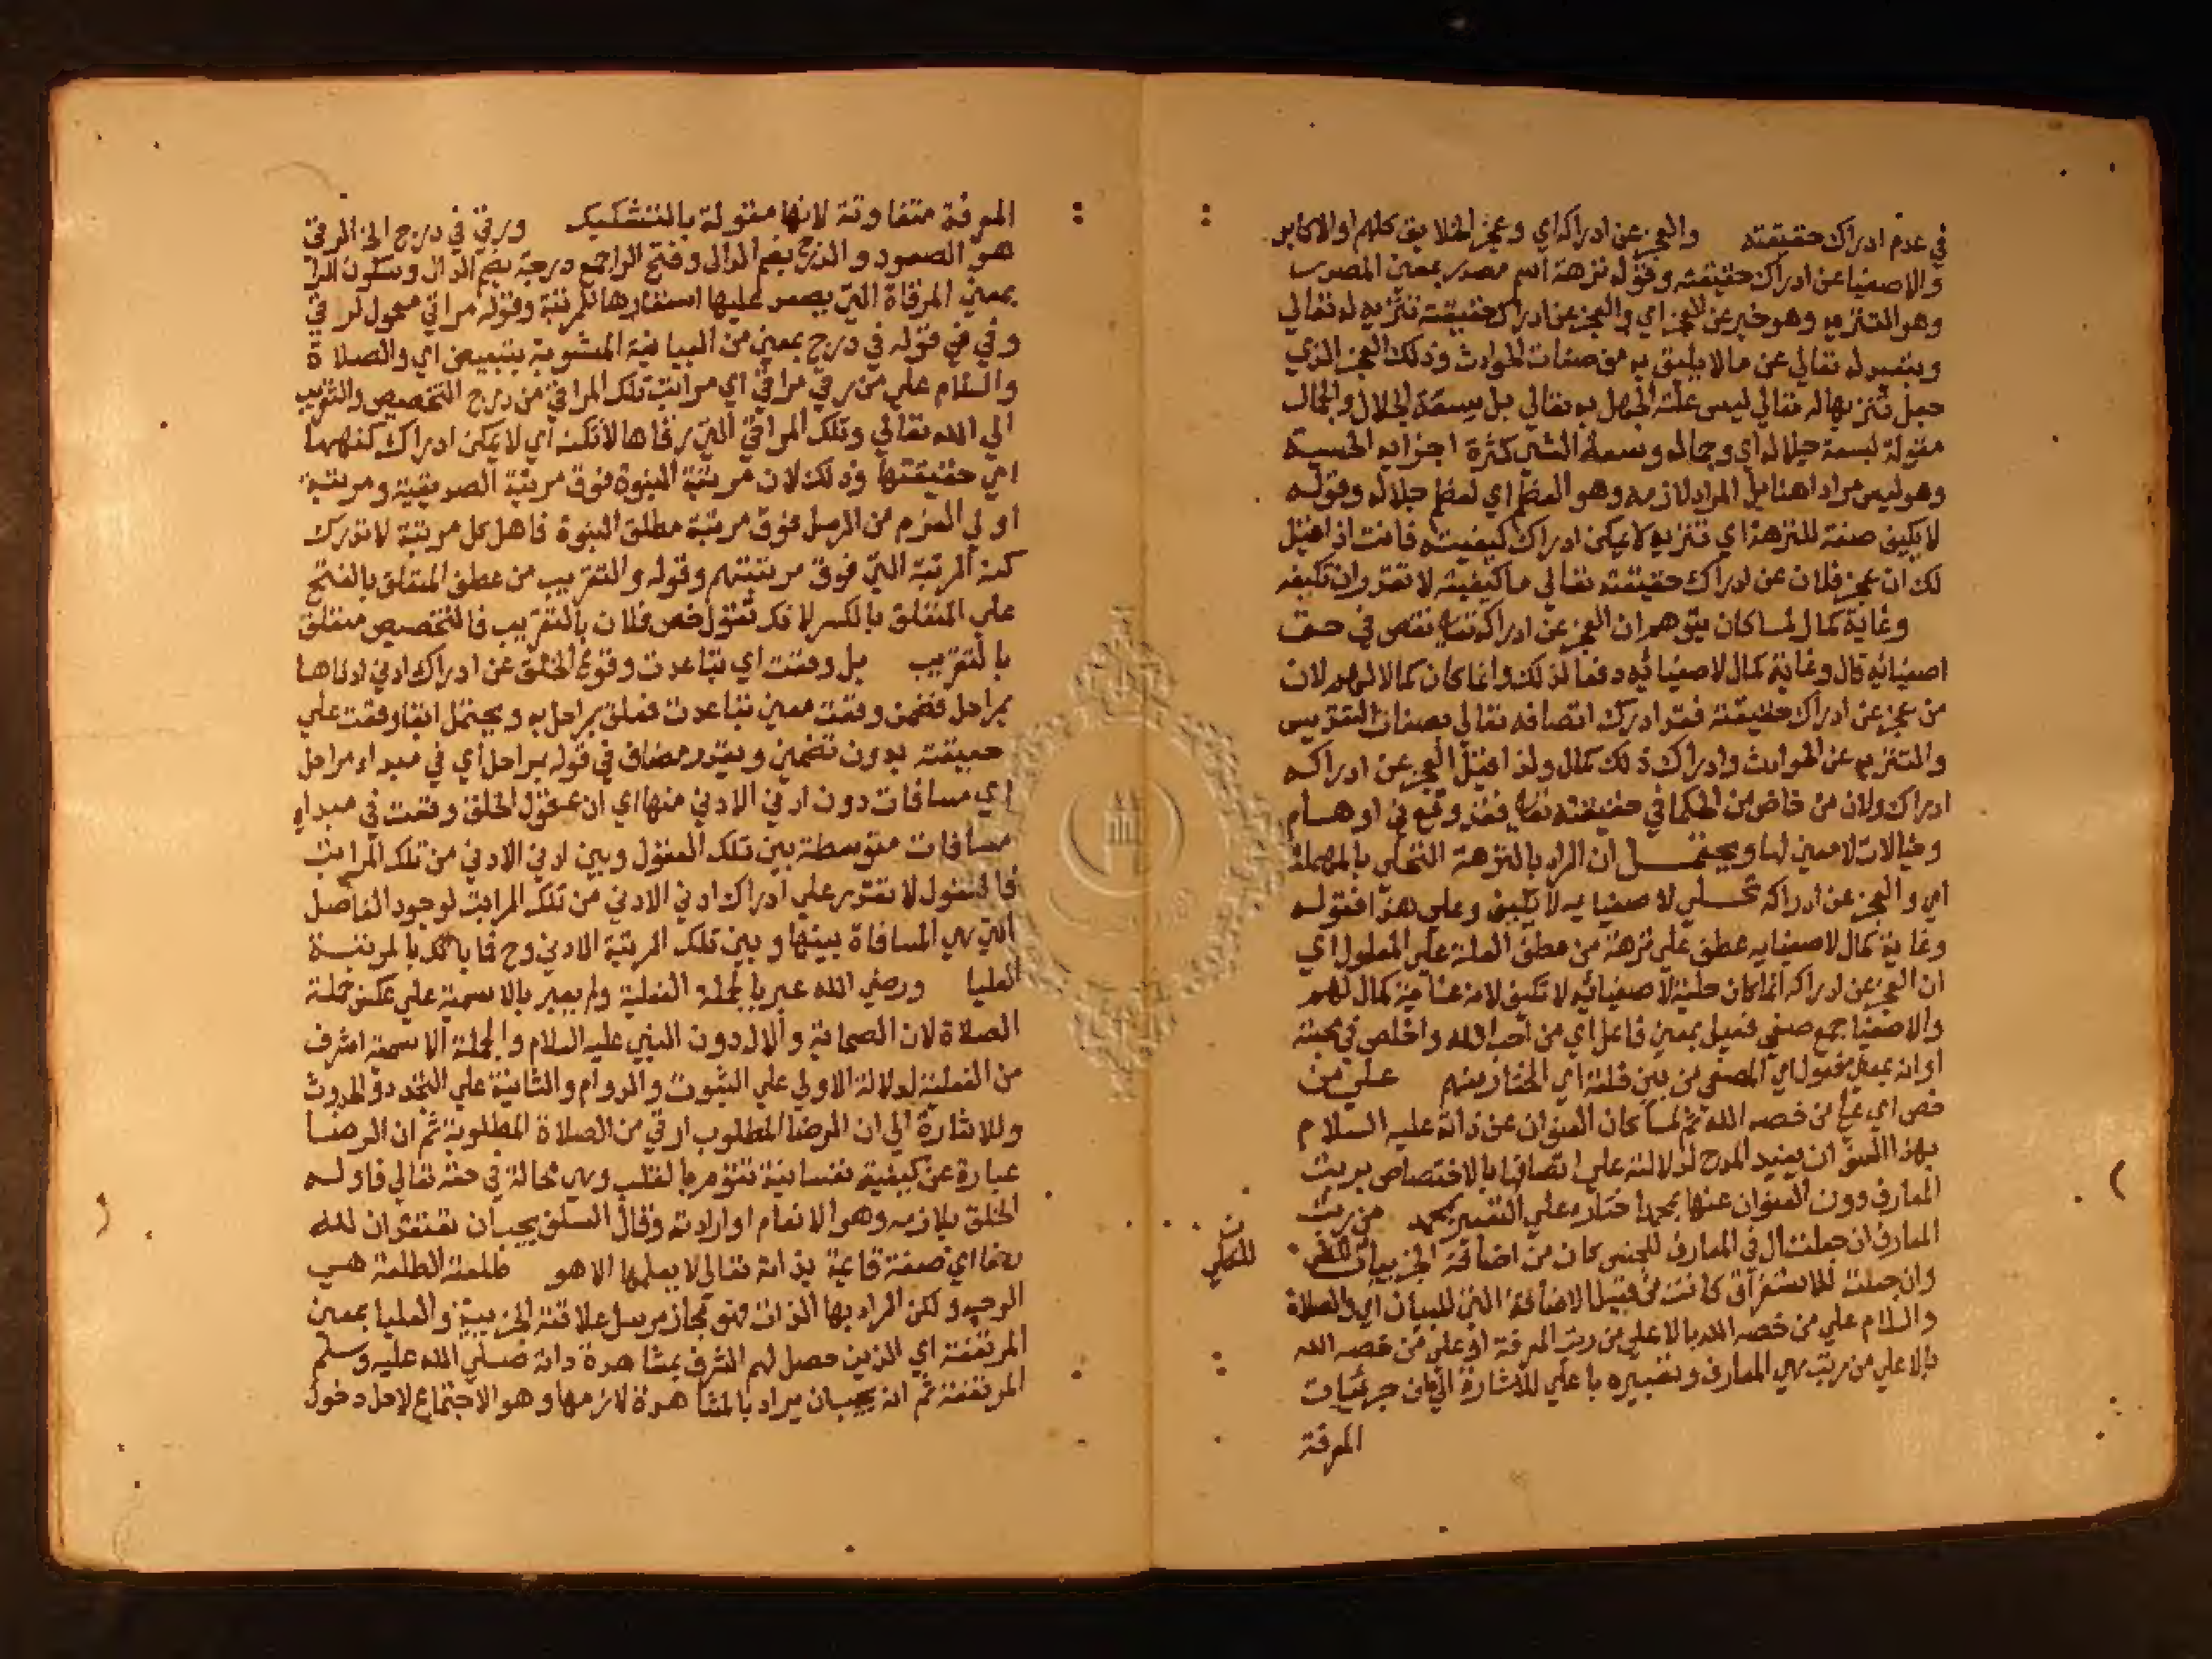 في عدم ادراك حقيقته والعجز عن ادراكه اي وعجز الخلايق كلهم او الاكابر
والاصفيا عن ادراك حقيقته وقوله نزهة اسم مصدر بمعني المصدر
وهو التنزيه وهو خبر عن العجز اي والعجز عن ادراك حقيقته تنزيه له تعالي
وبتعبد له تعالي عن ما لا يليق به من صفات الحوادث وذلك العجز الذي
جعل تنزيها له تعالي ليس علته الجهل به تعالي بل سعة الجلال والجمال
مقولة لسعة جلاله اي وجماله وسعة الشي كثرة اجزايه الحسية
وهو ليس مرادا هنا بل المراد لازمه وهو العظم اي لعظم جلاله وقوله
لا يكيف صفة للنزهة اي تنزيه لا يمكن ادراك كيفيته فانت اذا قيل
لك ان عجز فلان عن ادراك حقيقته تعالي ما كيفيته لا تقدر ان تكيفه
وغاية كمال لما كان يتوهم ان العجز عن ادراكه تعالي نقص في حق
اصفيائه قال وغاية كمال لاصفيائه دفعا لذلك وانما كان كمالا لهم لان
من عجز عن ادراك حقيقته فقد ادرك اتصافه تعالي بصفات التقديس
والتنزيه عن الحوادث وادراك ذلك كمال ولذا قيل العجز عن ادراكه
ادراك ولان من خاض من الحكما في حقيقته تعالي فقد وقع في اوهام
وخيالات لا معني لها ويحتمل ان المراد بالنزهة التحلي بالمهملة
اي والعجز عن ادراكه تحلي لاصفيايه لا يكيف وعلي هذا فقوله
وغاية كمال لاصفيايه عطف علي نزهة من عطف العلة علي المعلول اي
ان العجز عن ادراكه انما كان حلية لاصفيائه لا تكيف لانه غاية كمال لهم
والاصفيا جمع صفي فعيل بمعني فاعل اي من احب الله واخلص في محبته
او انه بمعني مفعول اي المصفي من بين خلقه اي المختار منهم علي من
خص اي علي من خصه الله ثم لما كان العنوان عن ذاته عليه السلام
بهذا العنوان يفيد المدح لدلالته علي اتصافها بالاختصاص برتب
المعارف دون العنوان عنها بمحمد اختاره علي التعبير بمحمد من رتب
المعارف ان جعلت ال في المعارف للجنس كان من اضافة الجزييات للكلي
وان جعلت للاستغراق كانت من قبيل الاضافة التي للبيان اي والصلاة
والسلام علي من خصه الله بالاعلي من رتب المعرفة او علي من خصه الله
بالاعلي من رتب هي المعارف وتعبيره باعلي للاشارة الي ان جزئيات
المعرفة
المعرفة متفاوتة لانها مقولة بالتشكيك ورقي في درج الخ الرقي
هو الصعود والدرج بضم الدال وفتح الرا جمع درجة بضم الدال وسكون الرا
بمعني المرقاة التي يصعد عليها استعارها للمرتبة وقوله مراقي معمول لرقي
وفي في قوله في درج بمعني من البيانية المشوبة بتبعيض اي والصلاة
والسلام علي من رقي مراقي اي مراتب تلك المراقي من درج التخصيص والتقريب
الي الله تعالي وتلك المراقي التي رقاها لا تكنه اي لا يمكن ادراك كنهها
اي حقيقتها وذلك لان مرتبة النبوة فوق مرتبة الصديقية ومرتبة
اولي العزم من الرسل فوق مرتبة مطلق النبوة فاهل كل مرتبة لا تدرك
كنه المرتبة التي فوق مرتبتهم وقوله والتقريب من عطف المتعلق بالفتح
علي المتعلق بالكسر لانك تقول خص فلان بالتقريب فالتخصيص متعلق
بالتقريب بل وقفت اي تباعدت وقوي الخلق عن ادراك ادني ادناها
بمراحل فضمن وقفت معني تباعدت فعلق بمراحل به ويحتمل ابقا وقفت علي
حقيقته بدون تضمين ويقدر مضاف في قوله بمراحل اي في مبداء مراحل
اي مسافات دون ادني الادني منها اي ان عقول الخلق وقفت في مبداء
مسافات متوسطة بين تلك العقول وبين ادني الادني من تلك المراتب
فالعقول لا تقدر علي ادراك ادني الادني من تلك المراتب لوجود الفاصل
التي هي المسافاة بينها وبين تلك المرتبة الادني وح فما بالك بالمرتبة
العليا ورضي الله عبر بالجملة الفعلية ولم يعبر بالاسمية علي عكس جملة
الصلاة لان الصحابة والال دون النبي عليه السلام والجملة الاسمية اشرف
من الفعلية لدلالة الاولي علي الثبوت والدوام والثانية علي التجدد والحدوث
وللاشارة الي ان الرضا المطلوب ارقي من الصلاة المطلوبة ثم ان الرضا
عبارة عن كيفية نفسانية تقوم بالقلب وهي محالة في حقه تعالي فاوله
الخلق بلازمه وهو الانعام او ارادته وقال السلف يجب ان نعتقد ان لله
رضا اي صفة قايمة بذاته تعالي لا يعلمها الا هو طلعته الطلعة هي
الوجه ولكن المراد بها الذات فهو مجاز مرسل علاقته الجزيية والعليا بمعني
المرتفعة اي الذين حصل لهم الشرف بمشاهدة ذاته صلي الله عليه وسلم
المرتفعة ثم انه يجب ان يراد بالمشاهدة لازمها وهو الاجتماع لاجل دخول